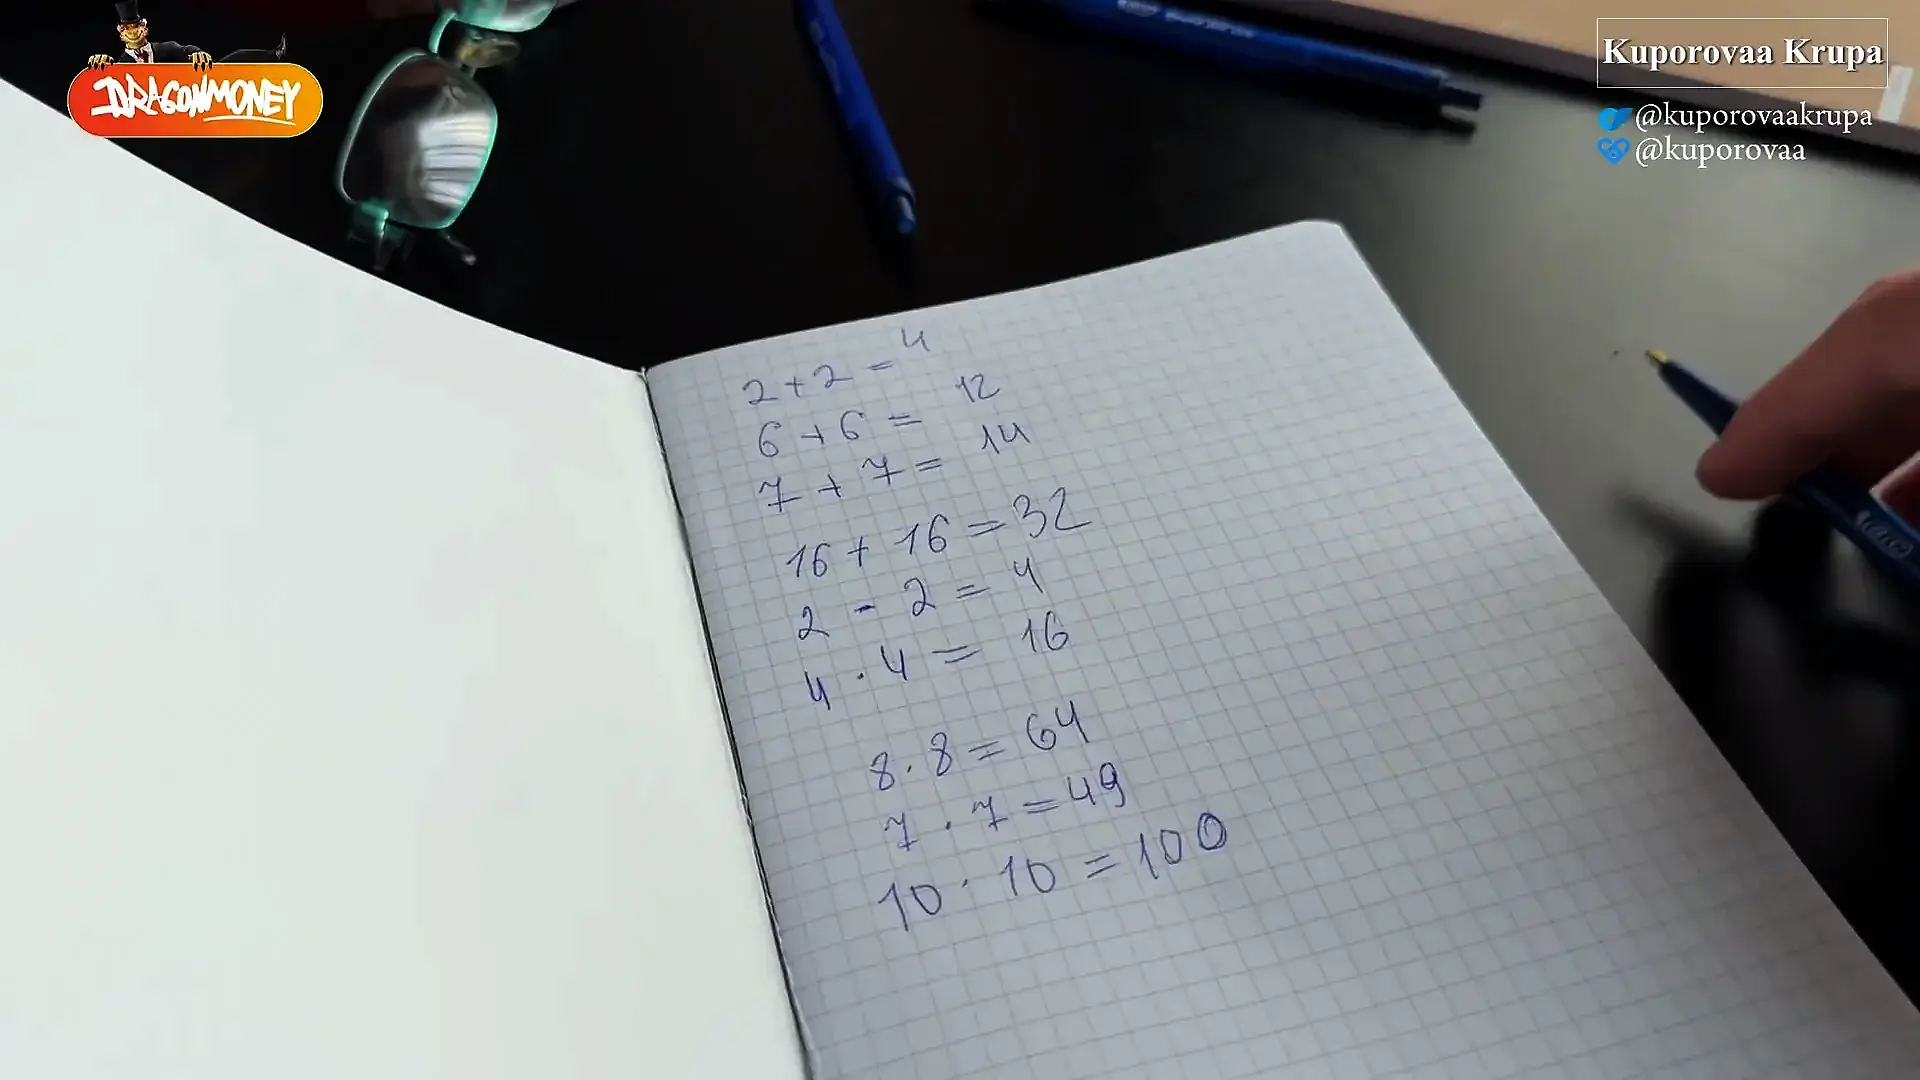 DRAGONMONEY
Kuporovaa Krupa
@kuporovaakrupa
@kuporovaa
2 + 2 = 4
6 + 6 = 12
7 + 7 = 14
16 + 16 = 32
2 - 2 = 4
4 · 4 = 16
8 · 8 = 64
7 · 7 = 49
10 · 10 = 100